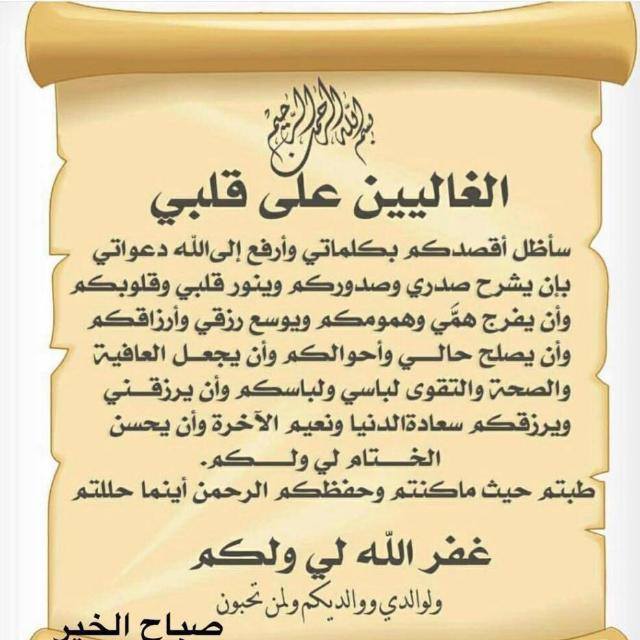 بسم الله الرحمن الرحيم
الغاليين على قلبي
سأظل أقصدكم بكلماتي وأرفع إلى الله دعواتي
بإن يشرح صدري وصدوركم وينور قلبي وقلوبكم
وأن يفرج همَّي وهمومكم ويوسع رزقي وأرزاقكم
وأن يصلح حالـــي وأحوالكم وأن يجعـل العافية
والصحة والتقوى لباسي ولباسكم وأن يرزقـــني
ويرزقكم سعادةالدنيا ونعيم الآخرة وأن يحسن
الخـــتام لي ولـــكم.
طبتم حيث ماكنتم وحفظكم الرحمن أينما حللتم
غفر الله لي ولكم
ولوالدي ووالديكم ولمن تحبون
صباح الخير